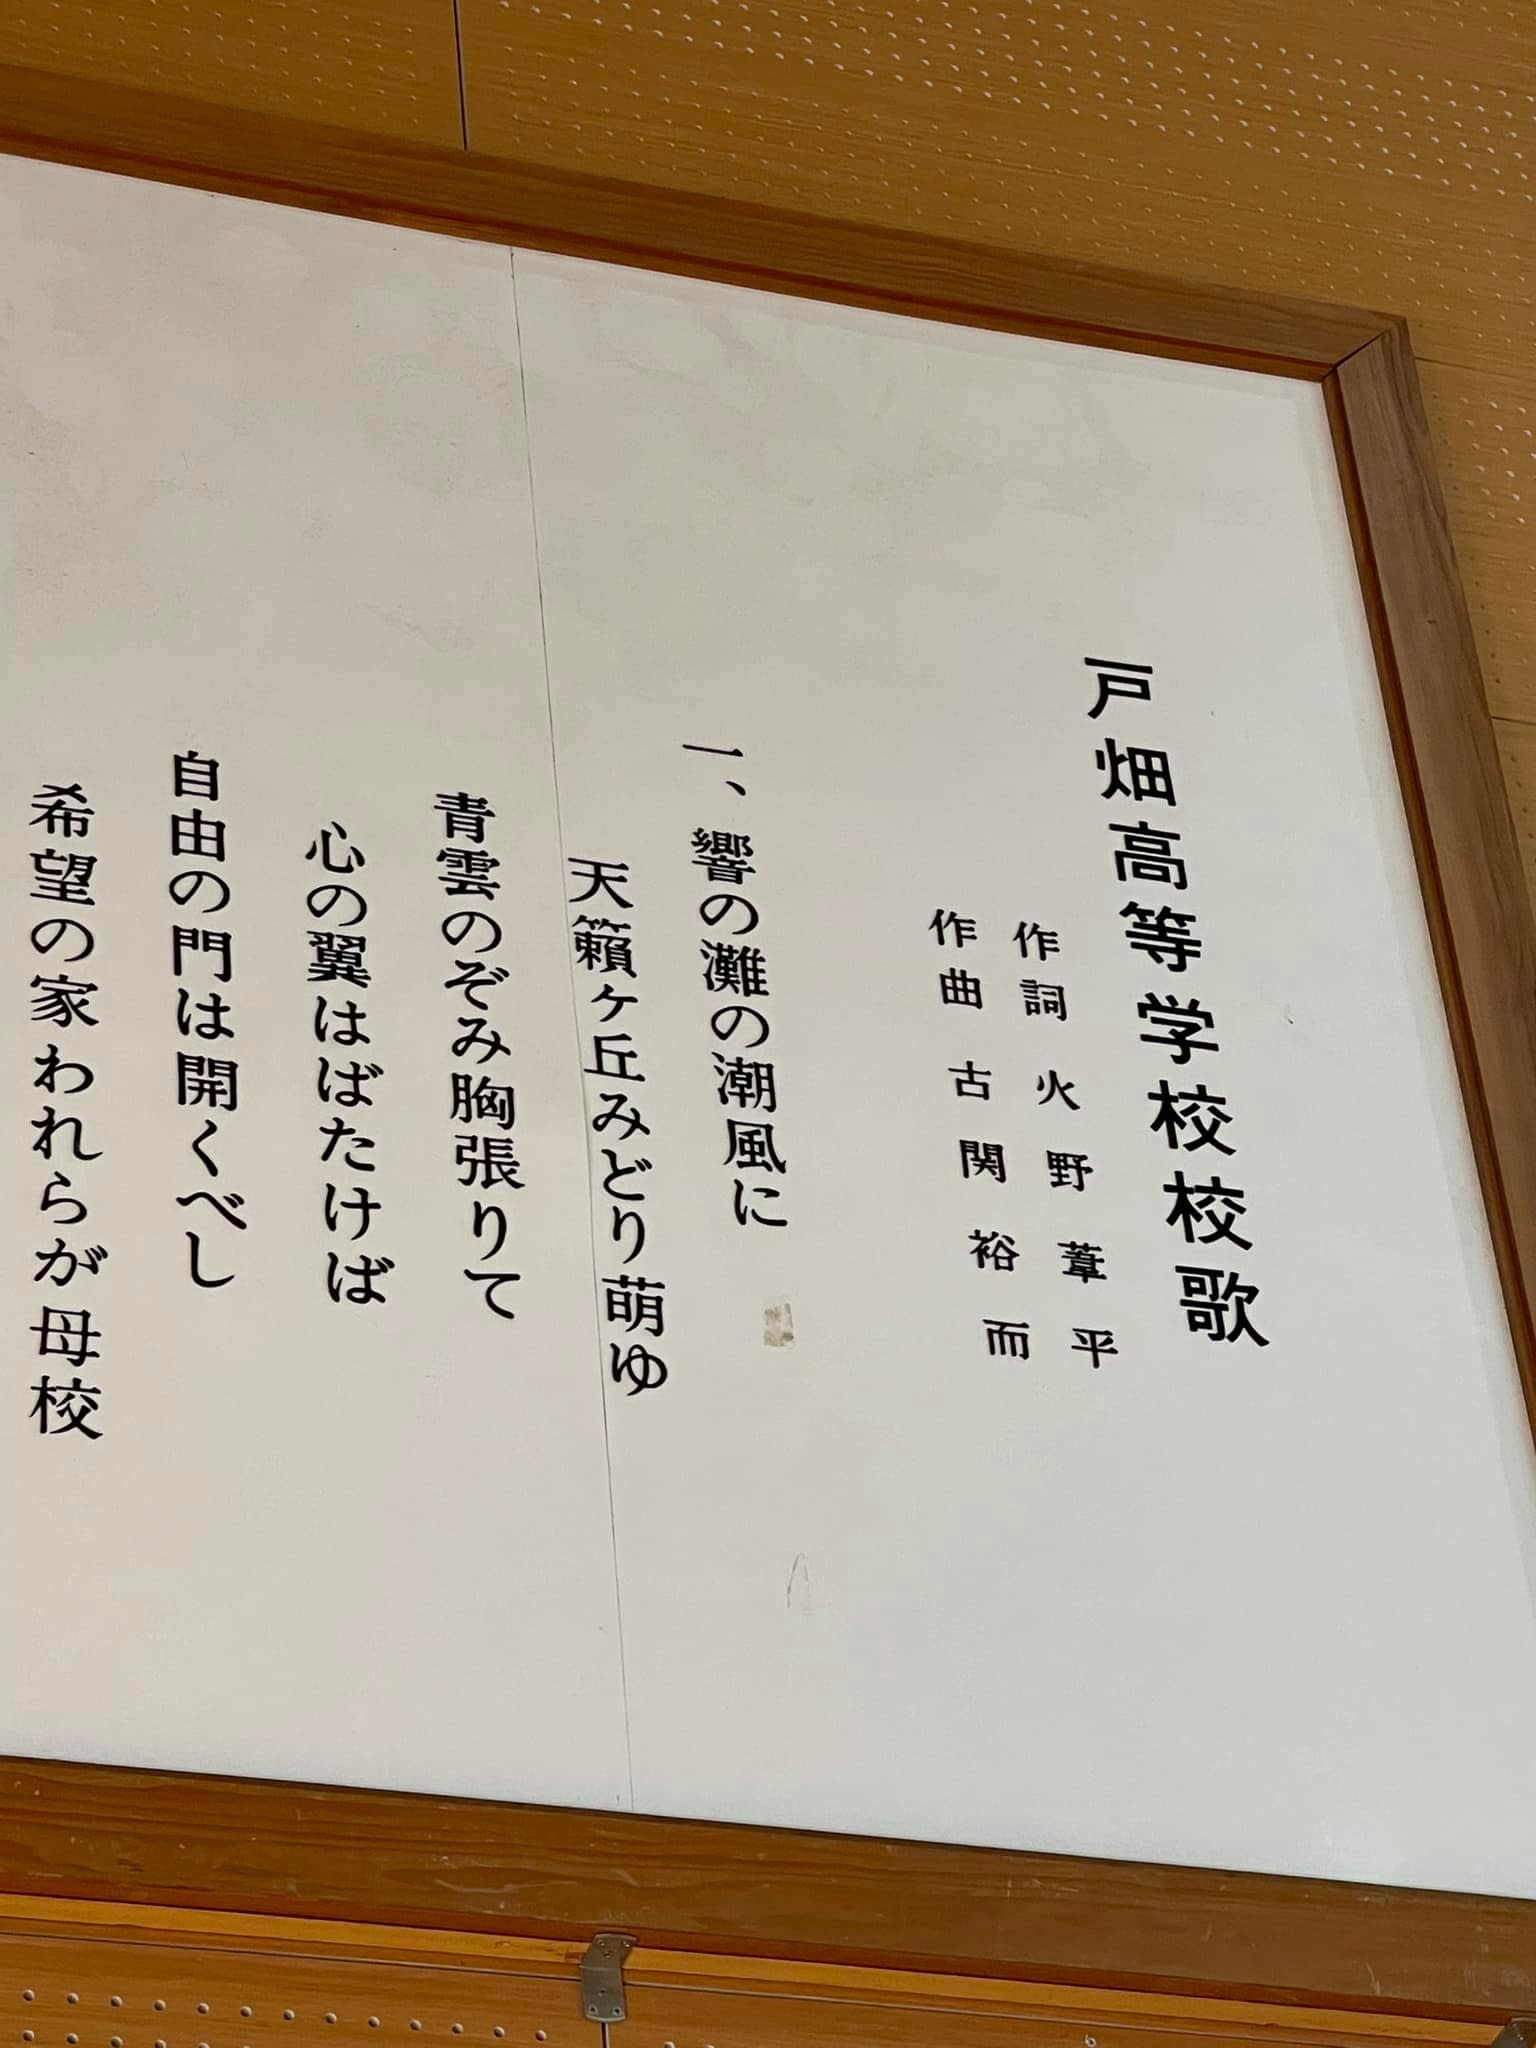 戸畑高等学校校歌
作詞 火野葦平
作曲 古関裕而
一、響の灘の潮風に
天籟ヶ丘みどり萌ゆ
青雲のぞみ胸張りて
心の翼はばたけば
自由の門は開くべし
希望の家われらが母校